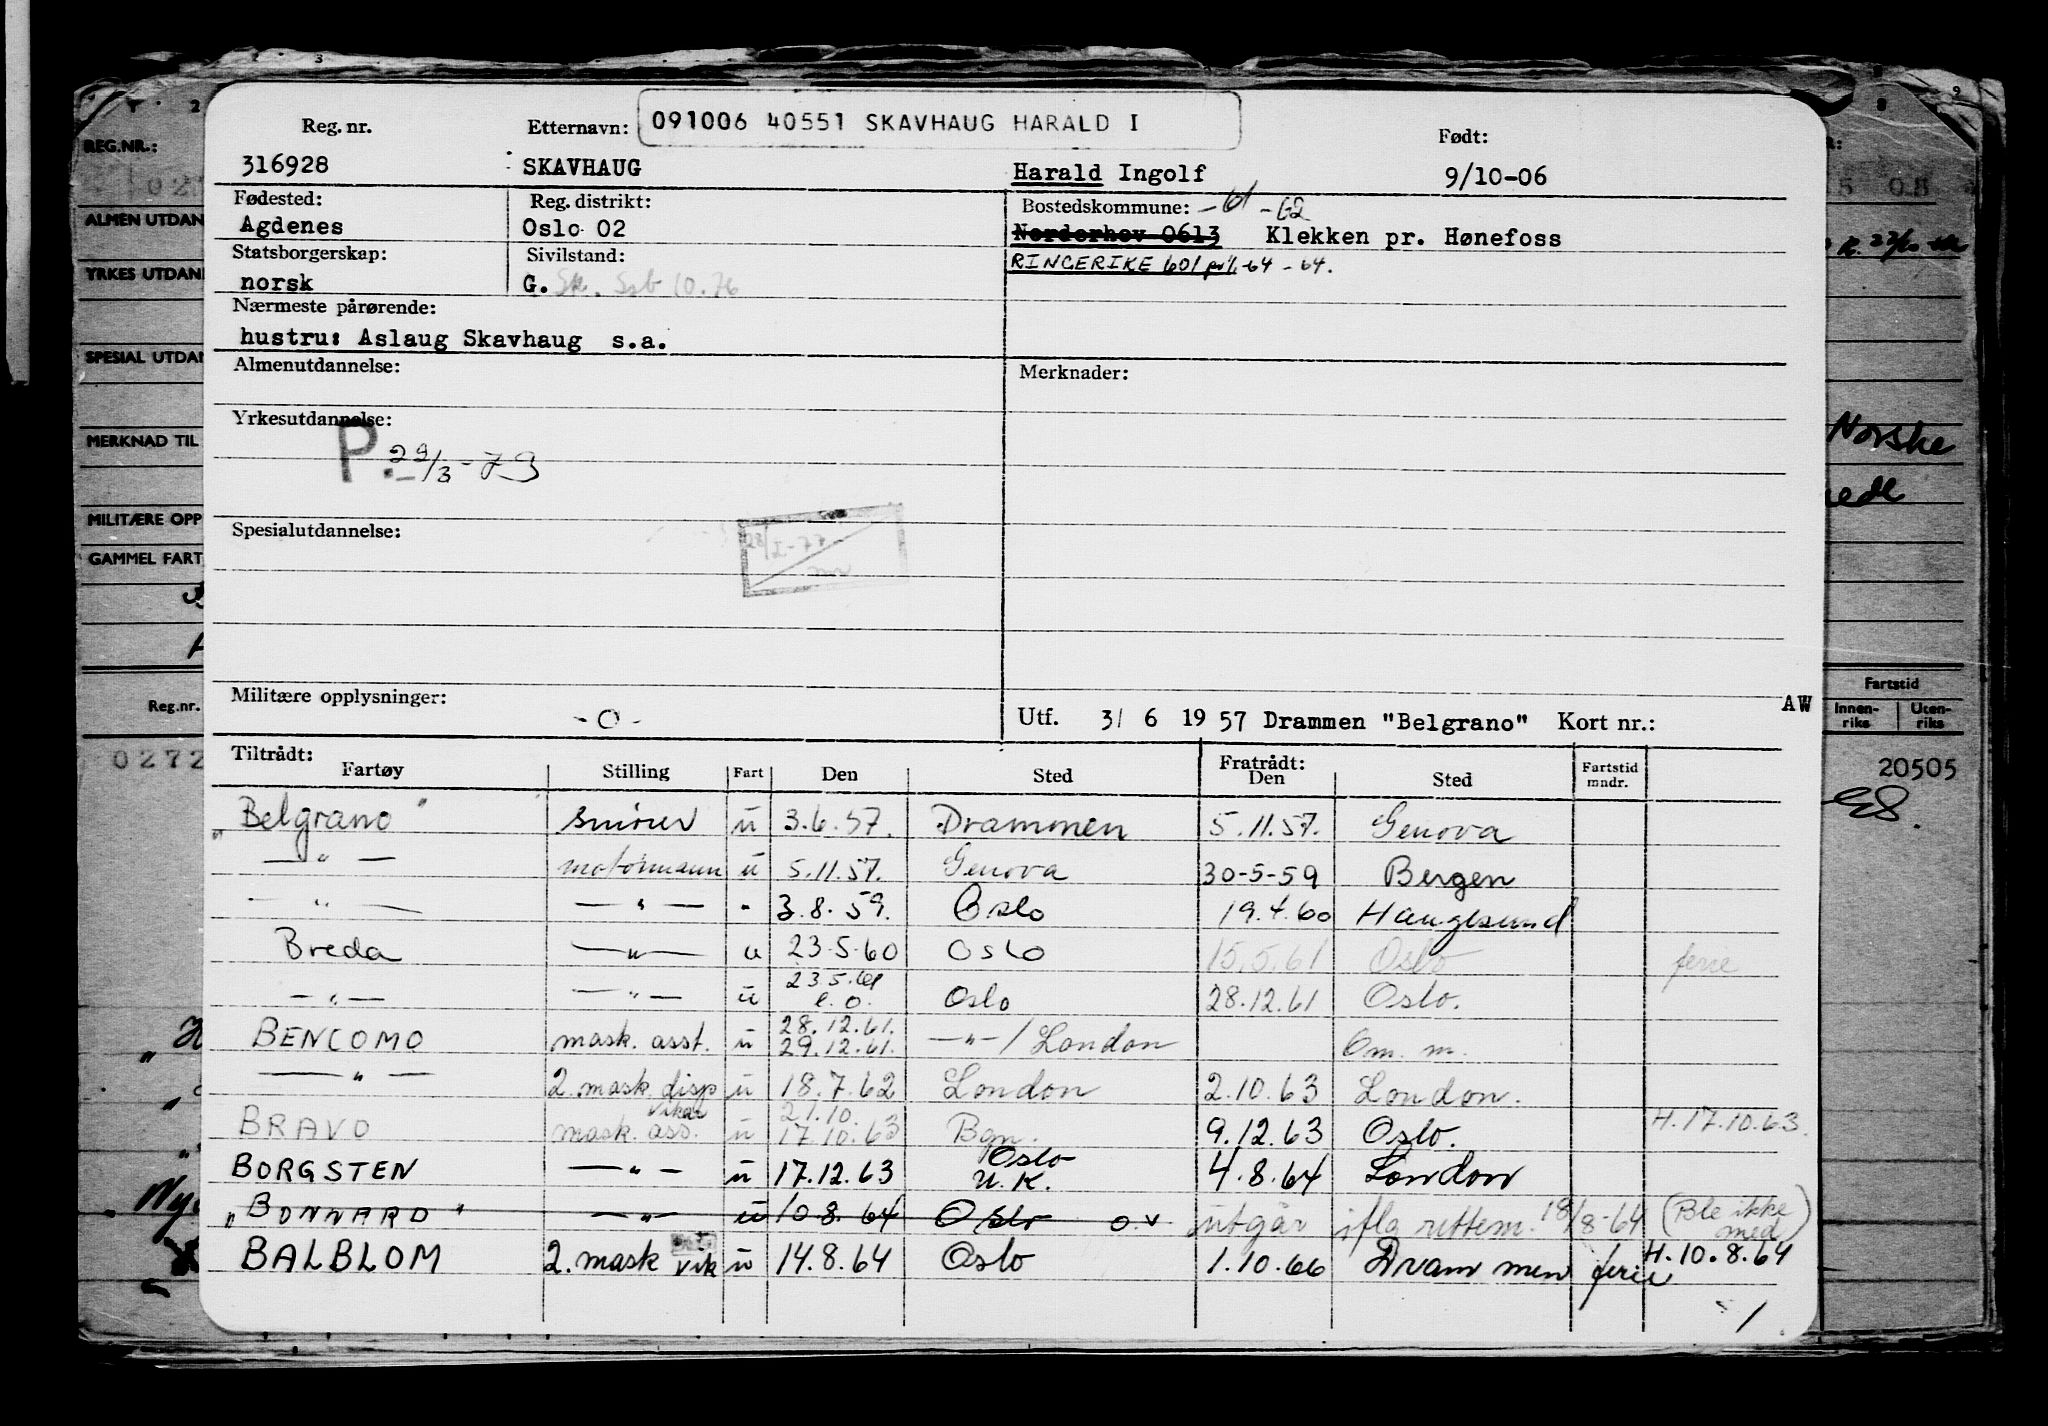 091006 40551 SKAVHAUG HARALD I
Reg. nr. Etternavn: Født:
316928 SKAVHAUG Harald Ingolf 9/10-06
Fødested: Reg. distrikt: Bostedskommune: -61 -62
Agdenes Oslo 02 Norderhov 0613 Klekken pr. Hønefoss
Statsborgerskap: Sivilstand: RINGERIKE 601 pr/1-64 - 64.
norsk G. Sk. Ssb 10.76
Nærmeste pårørende:
hustru: Aslaug Skavhaug s.a.
Almenutdannelse: Merknader:
Yrkesutdannelse:
P. 29/3-73
Spesialutdannelse:
28/I-77
Militære opplysninger: -0- Utf. 3/ 6 19 57 Drammen "Belgrano" Kort nr.: AW
Tiltrådt: Fratrådt:
Fartøy Stilling Fart Den Sted Den Sted Fartstid mndr.
"Belgrano" smører u 3.6.57. Drammen 5.11.57. Genova
—"— motormann u 5.11.57. Genova 30-5-59 Bergen
—"— —"— " 3.8.59. Oslo 19.4.60 Haugesund
Breda —"— u 23-5-60 Oslo 15.5.61 Oslo ferie
—"— —"— u 23.5.61 e.o. Oslo 28.12.61 Oslo.
BENCOMO mask. asst. u 28.12.61. 29.12.61. —"—/London Om. m.
—"— 2. mask. disp u 18.7.62 London 2.10.63 London.
BRAVO vikar mask. ass. u 21.10. 17.10.63 Bgn. 9.12.63 Oslo. H.17.10.63.
BORGSTEN —"— u 17.12.63 Oslo U.K. 4.8.64 London
"BONNARD" —"— u 10.8.64 Oslo o.v utgår ifla rettem. 18/8-64 (Ble ikke med)
BALBLOM 2. mask vik u 14.8.64 Oslo 1.10.66 Drammen ferie H.10.8.64
1
REG.NR.:
ALMEN UTDAN
YRKES UTDAN
SPESIAL UTDAN
MERKNAD TIL
MILITÆRE OPP
GAMMEL FART
Reg.nr.
0272
Norske
Fartstid
Innen-riks Uten-riks
20505